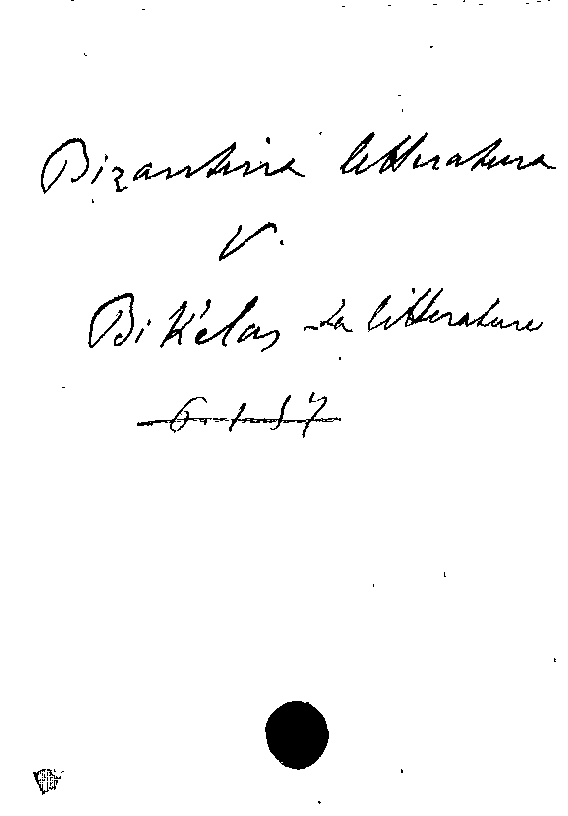 Bizantina letteratura
V.
Bikélas - La littérature
6.1.57